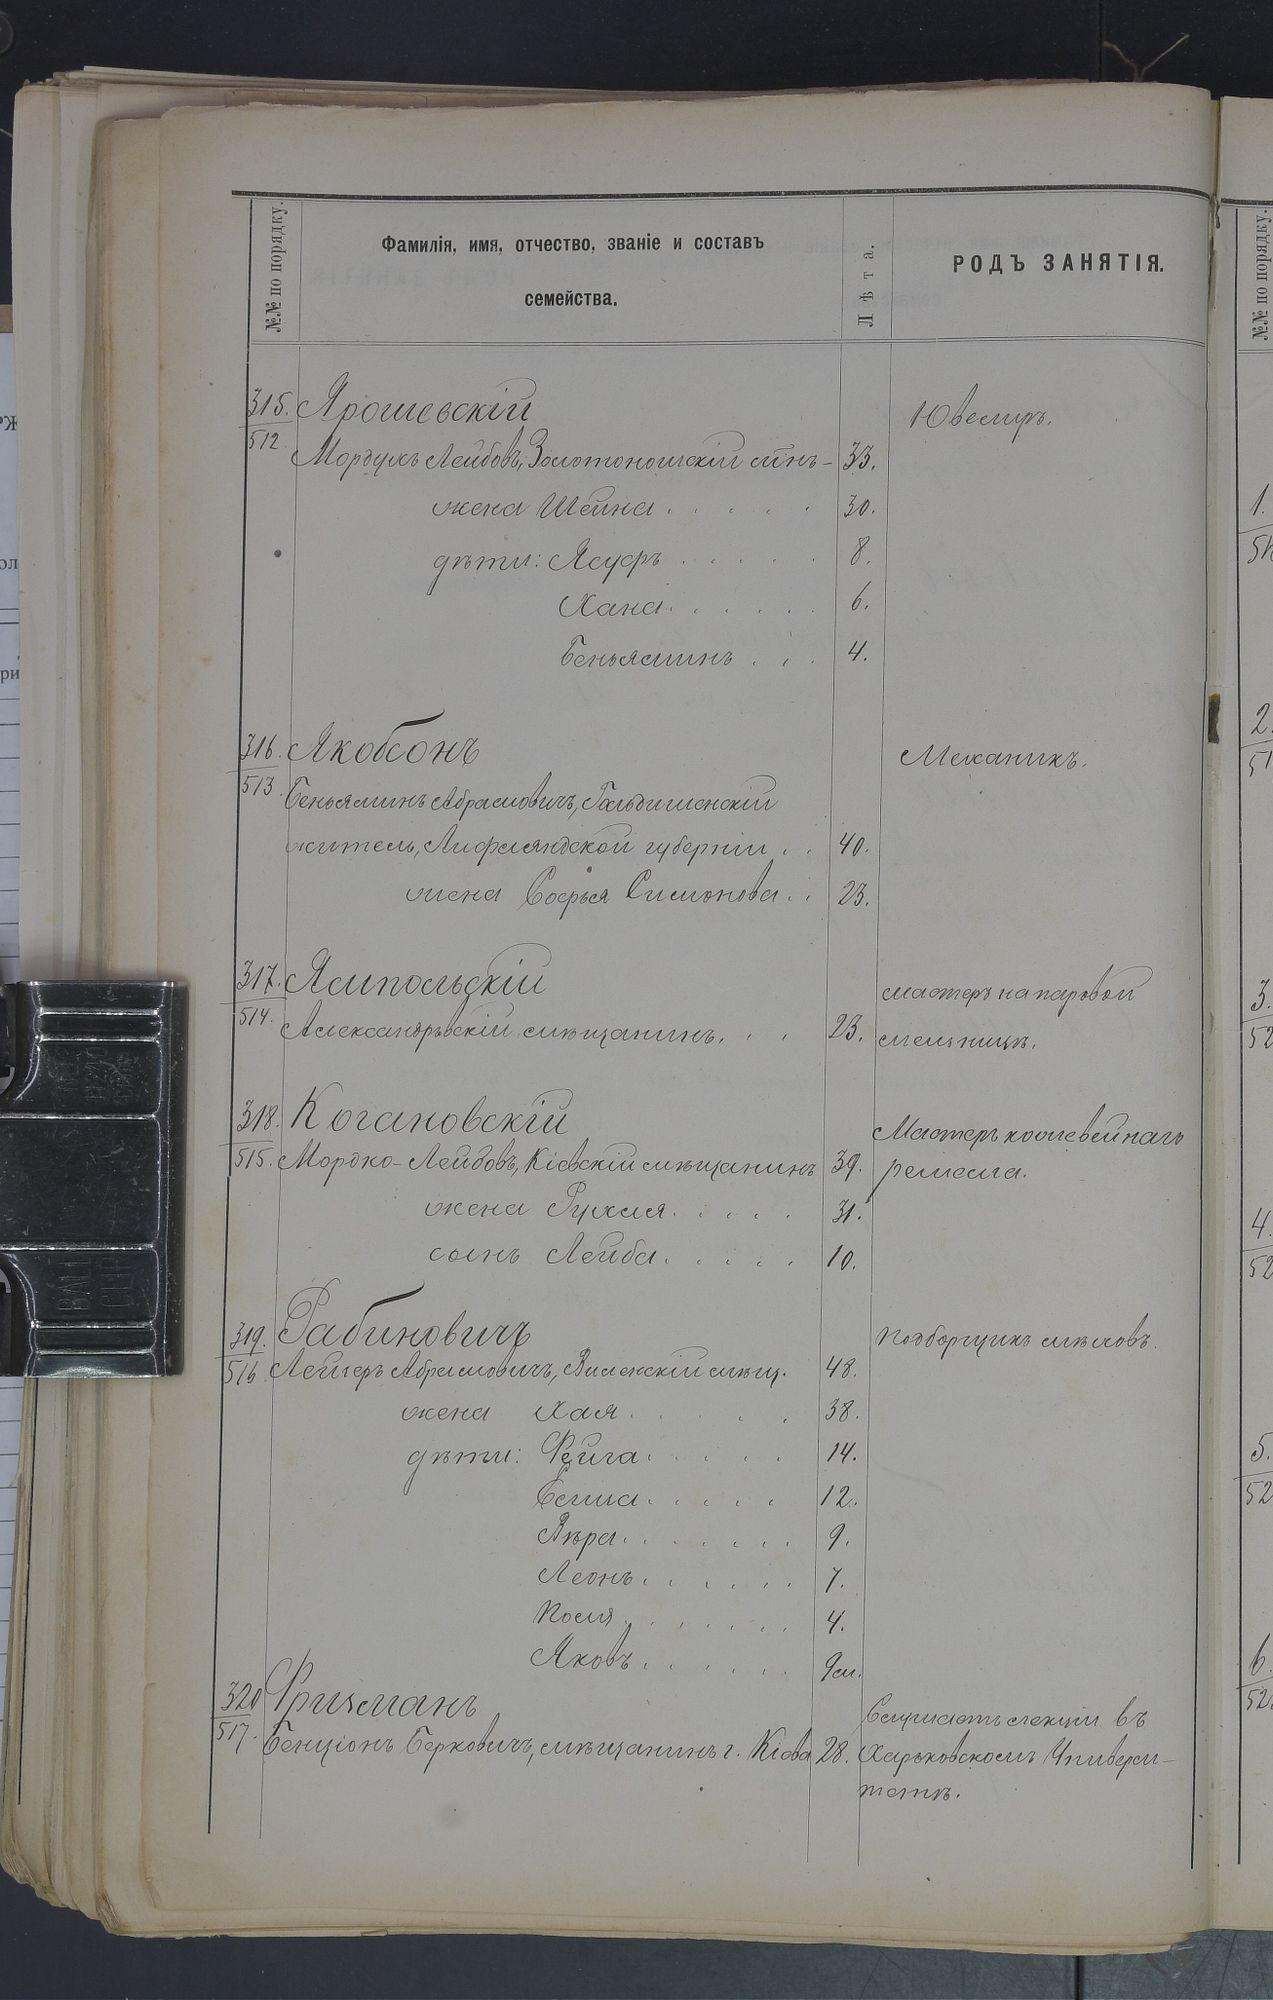 №№ по порядку.
Фамилія, имя, отчество, званіе и составъ
семейства.
Лѣта.
РОДЪ ЗАНЯТІЯ.
315. Ярошевскій Ювелиръ.
512 Мордухъ Лейбовъ, Золотоношскій мѣщ. 33.
жена Шейна 30.
дѣти: 8.
Хана 6.
Беньяминъ 4.
316. Якобсонъ Механикъ.
513. Беньяминъ Абрамовичъ,
житель, Лифляндской губерніи 40.
жена Софья Симонова 23.
317. Ямпольскій мастеръ на паровой
514. Александрьвскій мѣщанинъ. 23. мельницѣ.
318. Когановскій Мастеръ кожевейнаго
515. Мордко-Лейбовъ, Кіевскій мѣщанинъ 39. ремесла.
жена Рухля 31.
сынъ Лейба 10.
319. Рабиновичъ подборщикъ мѣховъ.
516. Лейзеръ Абрамовичъ, Виленскій мѣщ. 48.
жена Хая 38.
дѣти: Фейга 14.
12.
Вѣра 9.
Леонъ 7.
4.
Яковъ 9 м.
320 Фризманъ Слушаетъ лекціи въ
517. Бенціонъ Берковичъ, мѣщанинъ г. Кіева 28. Харьковскомъ Универси-
тетѣ.
№№ по порядку.
1.
2.
3.
52
4.
52
5.
52
6.
52
BALL
CLIP